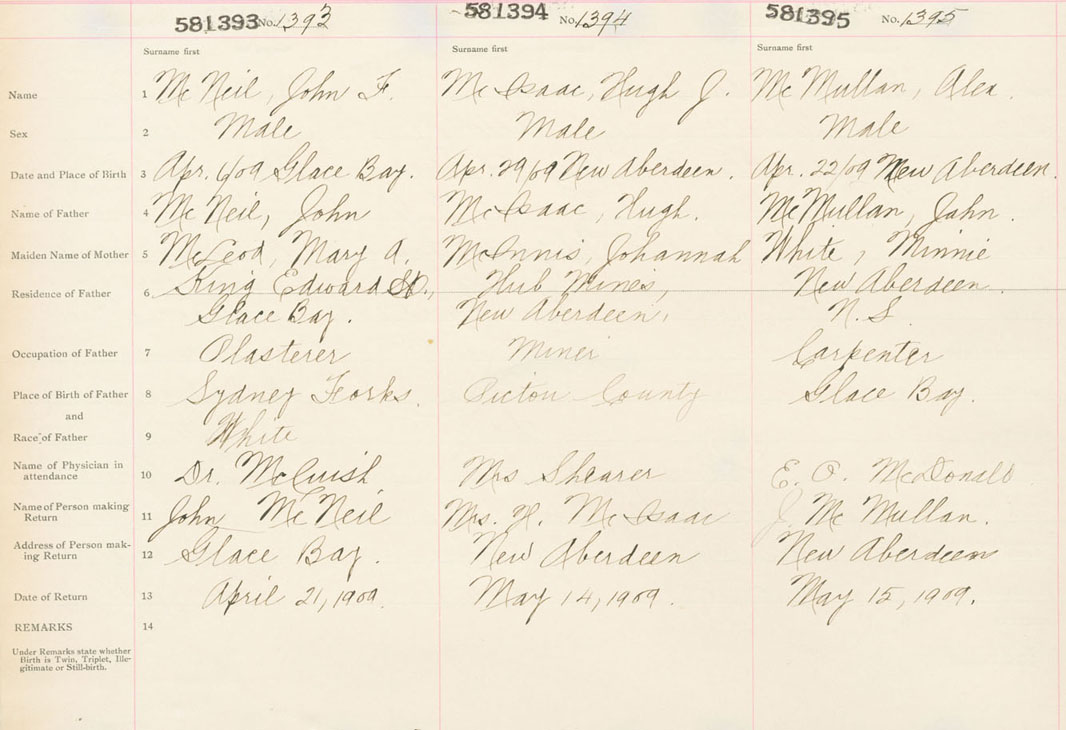 581393 No. 1393
581394 No. 1394
581395 No. 1395
Surname first
Surname first
Surname first
Name 1 McNeil, John F. McIsaac, Hugh J. McMullan, Alex.
Sex 2 Male Male Male
Date and Place of Birth 3 Apr. 6/09 Glace Bay. Apr. 29/09 New Aberdeen. Apr. 22/09 New Aberdeen.
Name of Father 4 McNeil, John McIsaac, Hugh. McMullan, John.
Maiden Name of Mother 5 McLeod, Mary A. McInnis, Johannah White, Minnie
Residence of Father 6 King Edward St., Hub Mines, New Aberdeen.
Glace Bay. New Aberdeen, N.S.
Occupation of Father 7 Plasterer Miner Carpenter
Place of Birth of Father 8 Sydney Forks. Pictou County Glace Bay.
and
Race of Father 9 White
Name of Physician in
attendance 10 Dr. McCuish Mrs Shearer E. O. McDonald
Name of Person making
Return 11 John McNeil Mrs. H. McIsaac J. McMullan.
Address of Person mak-
ing Return 12 Glace Bay. New Aberdeen New Aberdeen
Date of Return 13 April 21, 1909. May 14, 1909. May 15, 1909.
REMARKS 14
Under Remarks state whether
Birth is Twin, Triplet, Ille-
gitimate or Still-birth.